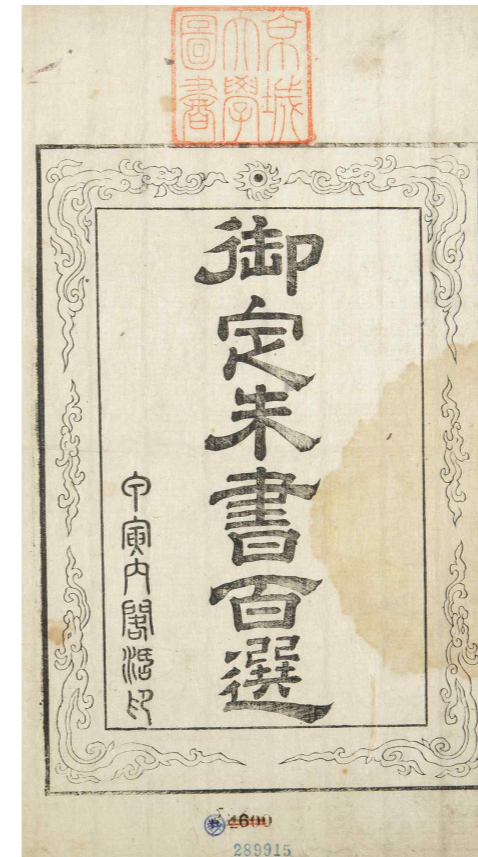 京城
大學
圖書
御定朱書百選
甲寅內閣活印
289915